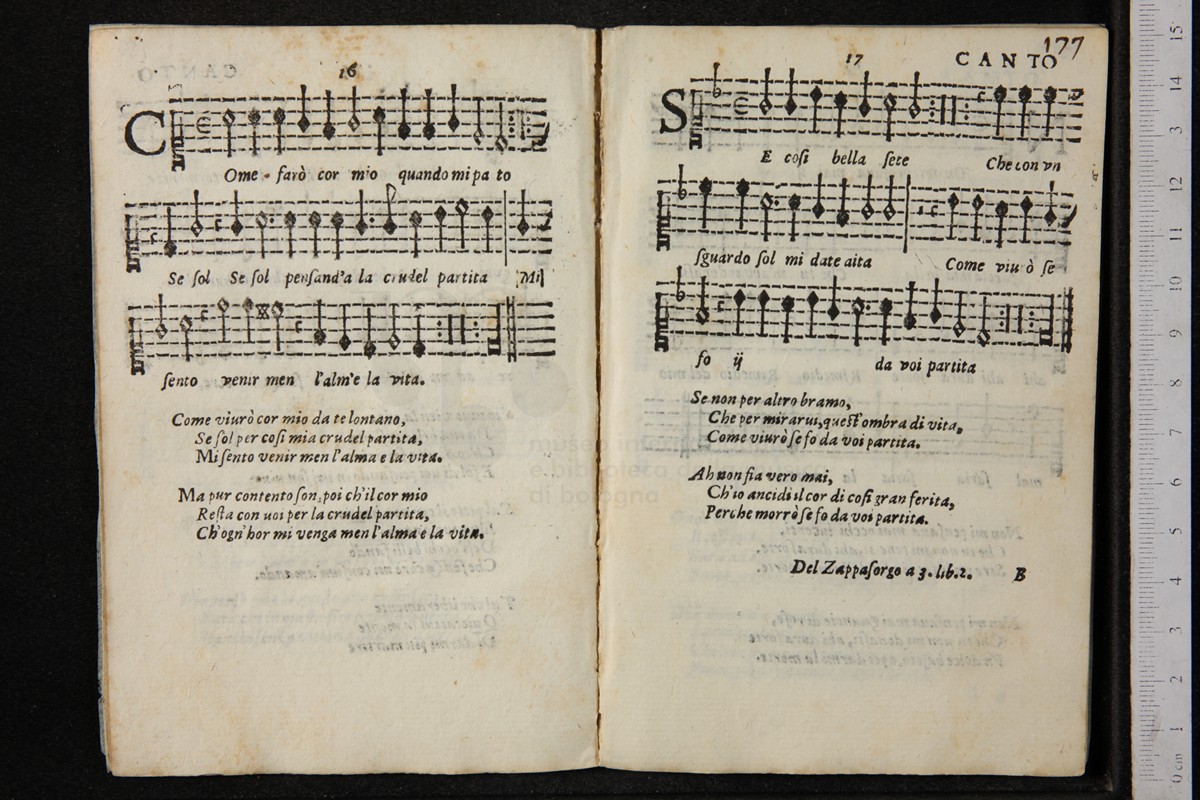 16
COme farò cor mio quando mi pa to
Se ſol Se ſol penſand'a la crudel partita Mi
ſento venir men l'alm'e la vita.
Come viurò cor mio da te lontano,
Se ſol per coſi mia crudel partita,
Mi ſento venir men l'alma e la vita.
Ma pur contento ſon, poi ch'il cor mio
Reſta con uoi per la crudel partita,
Ch'ogn'hor mi venga men l'alma e la vita.
17 CANTO 177
SE coſi bella ſete Che con vn
ſguardo ſol mi date aita Come viurò ſe
fo ij da voi partita
Se non per altro bramo,
Che per mirarui, queſt'ombra di vita,
Come viurò ſe fo da voi partita.
Ah non fia vero mai,
Ch'io ancidi il cor di coſi gran ferita,
Perche morrò ſe fo da voi partita.
Del Zappaſorgo a 3. lib. 2. B
museo inter
e biblioteca d
di bologna
15
14
13
12
11
10
9
8
7
6
5
4
3
2
1
0 cm